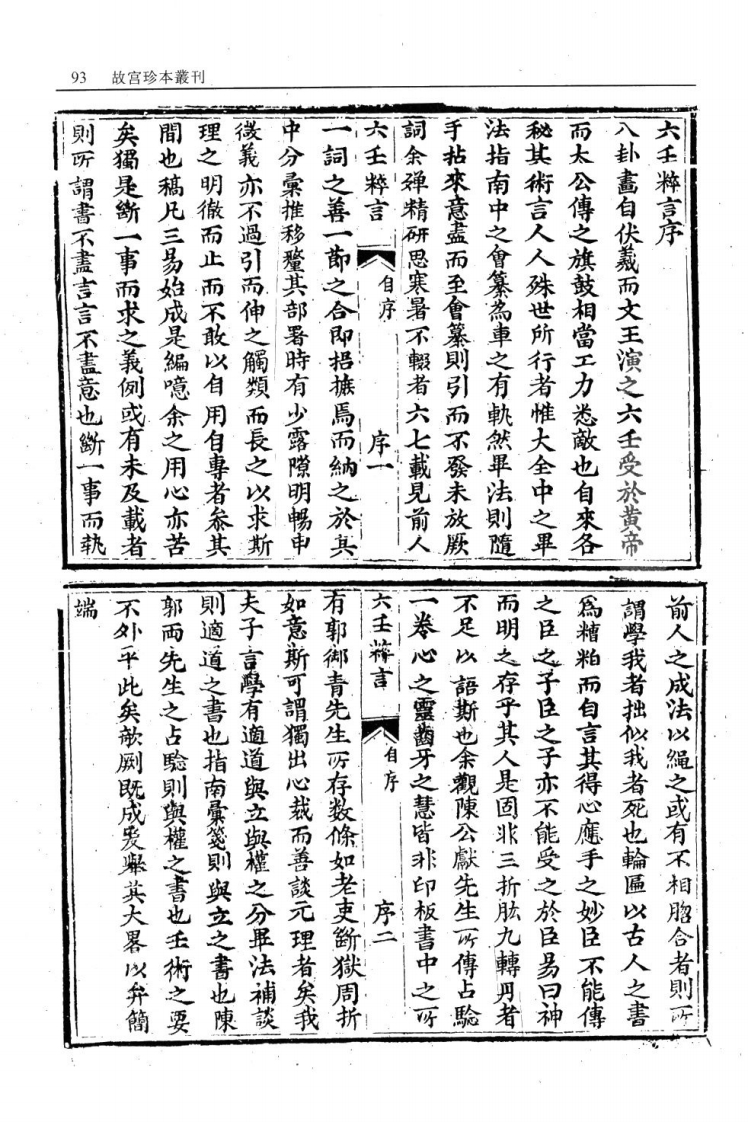 93 故宮珍本叢刊
六壬粹言序
八卦畫自伏羲而文王演之六壬受於黃帝
而太公傳之旗鼓相當工力悉敵也自來各
秘其術言人人殊世所行者惟大全中之畢
法指南中之會纂為車之有軌然畢法則隨
手拈來意盡而至會纂則引而不發未放厥
詞余殫精研思寒暑不輟者六七載見前人
六壬粹言 自序 序一
一詞之善一節之合即挹摭焉而納之於其
中分彙推移釐其部署時有少露隙明暢申
徵義亦不過引而伸之觸類而長之以求斯
理之明徹而止而不敢以自用自專者叅其
間也稿凡三易始成是編噫余之用心亦苦
矣獨是斷一事而求之義例或有未及載者
則所謂書不盡言言不盡意也斷一事而執
前人之成法以繩之或有不相脗合者則所
謂學我者拙似我者死也輪匾以古人之書
為糟粕而自言其得心應手之妙臣不能傳
之臣之子臣之子亦不能受之於臣易曰神
而明之存乎其人是固非三折肱九轉丹者
不足以語斯也余觀陳公獻先生所傳占驗
一卷心之靈齒牙之慧皆非印板書中之所
六壬粹言 自序 序二
有郭御青先生所存数條如老吏斷獄周折
如意斯可謂獨出心裁而善談元理者矣我
夫子言學有適道與立與權之分畢法補談
則適道之書也指南彙箋則與立之書也陳
郭兩先生之占驗則與權之書也壬術之要
不外乎此矣歒劂既成爰舉其大畧以弁簡
端